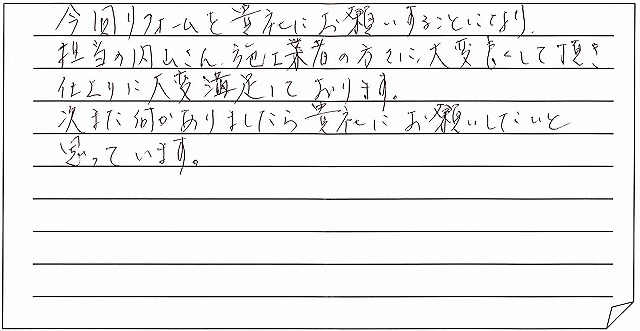 今回リフォームを貴社にお願いすることになり、
担当の内山さん、施工業者の方々に、大変良くして頂き
仕上りに大変満足しております。
次また何かありましたら貴社にお願いしたいと
思っています。